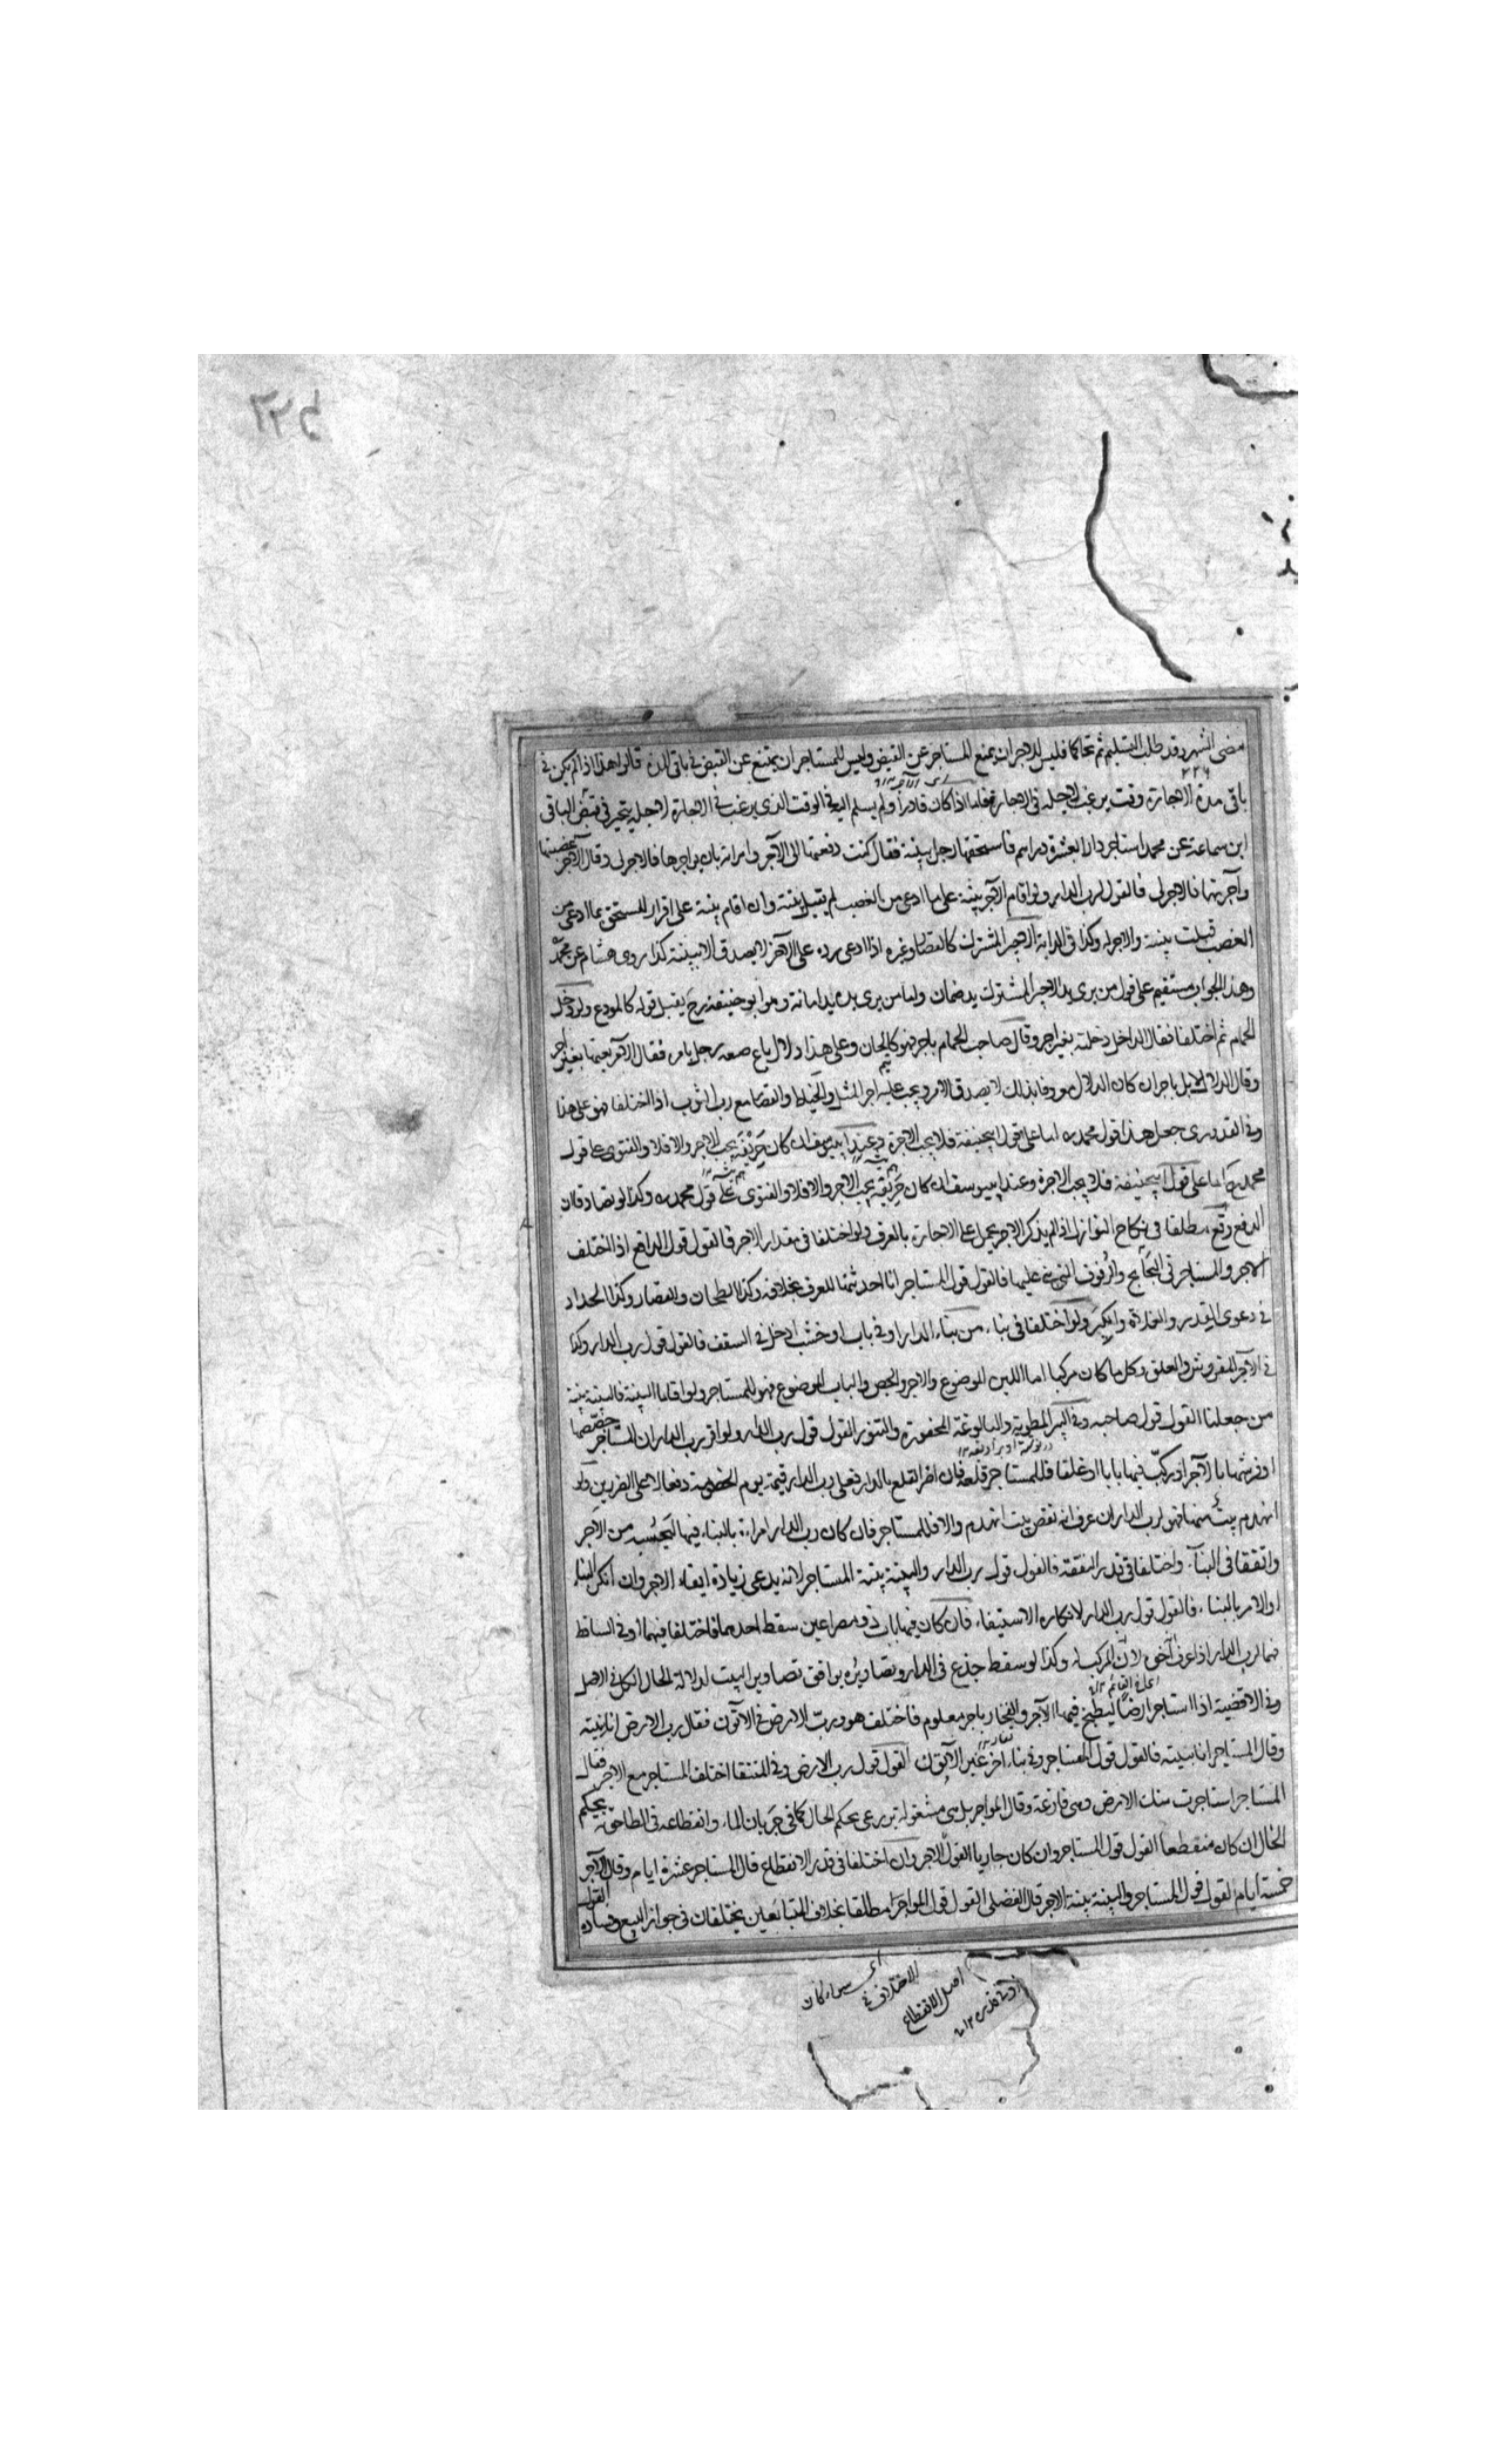 مضى الشهر وقد طلب التسليم ثم تحاكما فليس للاجر ان يمنع المستاجر عن القبض وليس للمستاجر ان يمتنع عن القبض في باقى المدة قالوا هذا اذا لم يكن في
باقى مدة الاجارة وقت يرغب لاجله في الاجارة فاما اذا كان قادرا ولم يسلم اليه في الوقت الذى يرغب في الاجارة لاجله يتخير في قبض الباقى
ابن سماعة عن محمد استاجر دارا بعشرة دراهم فاستحقها رجل ببينة فقال كنت دفعتها الى الآجر وامرته بان يواجرها فالاجر لى وقال الآجر غصبتها
وآجرتها فالاجر لى فالقول لرب الدار ولو اقام الآجر بينة على ما ادعى من الغصب لم يقبل بينته وان اقام بينة على اقرار المستحق بما ادعى من
الغصب قبلت بينته والاجر له وكذا في الدابة الاجير المشترك كالقصار وغيره اذا ادعى رده على الآخر لا يصدق الا ببينة كذا روى هشام عن محمد
وهذا الجواب مستقيم على قول من يرى يد الاجير المشترك يد ضمان واما من يرى يده يد امانة وهو ابو حنيفة رح يقبل قوله كالمودع ولو دخل
الحمام ثم اختلفا فقال الداخل دخلته بغير اجر وقال صاحب الحمام باجر فهو كالخان وعلى هذا دلال باع صعه رجل بامره فقال الآمر بعتها بغير اجر
وقال الدلال لا بل باجر ان كان الدلال معروفا بذلك لا يصدق الآمر ويجب عليه اجر المثل والخياط والقصار مع رب الثوب اذا اختلفا فهو على هذا
وفي القدورى جعل هذا قول محمد اما على قول ابيحنيفة فلا يجب الاجرة وعند ابييوسف ان كان حريفه يجب الاجر والا فلا والفتوى على قول
محمد رح اما على قول ابيحنيفة فلا يجب الاجرة وعند ابييوسف ان كان حريفه يجب الاجر والا فلا والفتوى على قول محمد وكذا لو تصادقا ان
الدفع وقع مطلقا في نكاح النوازل اذا لم يذكر الاجر يحمل على الاجارة بالعرف ولو اختلفا في مقدار الاجر فالقول قول الدافع اذا اختلف
الآجر والمستاجر في والرفوف التى عليها فالقول قول المستاجر انا احدثتها للعرف بخلافه وكذا الطحان والقصار وكذا الحداد
في دعوى القدر والعلاة والكير ولو اختلفا في بناء من بناء الدار او في باب او خشب ادخل في السقف فالقول قول رب الدار وكذا
في الآجر المفروش والغلق وكل ما كان مركبا اما اللبن الموضوع والاجر والجص والباب الموضوع فهو للمستاجر ولو اقاما البينة فالبينة بينة
من جعلنا القول قول صاحبه وفي البير المطوية والبالوعة المحفورة والتنور القول قول رب الدار ولو اقر رب الدار ان المستاجر جصصها
او فرشها بالآجر او ركب فيها بابا او غلقا فللمستاجر قلعه فان اضر القلع بالدار فعلى رب الدار قيمته يوم الخصومة دفعا لاعلى الضررين ولو
انهدم بيت منها فهو لرب الدار ان عرف انه نقض بيت انهدم والا فللمستاجر فان كان رب الدار امره بالبناء فيها ليحسبه من الآجر
واتفقا في البناء واختلفا في قدر النفقة فالقول قول رب الدار والبينة بينة المستاجر لانه يدعى زيادة ايفاء الاجر وان انكر البناء
او الامر بالبناء فالقول قول رب الدار لانكاره الاستيفاء فان كان فيها باب ذو مصراعين سقط احدهما فاختلفا فيهما او في الساقط
فهما لرب الدار اذا عرف آخى لان المركب له وكذا لو سقط جذع في الدار وتصاويره يوافق تصاوير البيت لدلالة الحال الكل في الاصل
وفي الاقضية اذا استاجر ارضا ليطبخ فيها الآجر والفخار باجر معلوم فاختلف هو ورب الارض في الاتون فقال رب الارض انا بنيته
وقال المستاجر انا بنيته فالقول قول المستاجر وفي بناء آخر غير الاتون القول قول رب الارض وفي المنتقا اختلف المستاجر مع الآجر فقال
المستاجر استاجرت منك الارض وهى فارغة وقال المواجر بل هى مشغولة بزرعى يحكم الحال كما في جريان الماء وانقطاعه في الطاحونة يحكم
الحال ان كان منقطعا القول قول المستاجر وان كان جاريا القول للاجر وان اختلفا في قدر الانقطاع قال المستاجر عشرة ايام وقال الآجر
خمسة ايام القول قول المستاجر والبينة بينة الاجر قال الفضلى القول قول المواجر مطلقا بخلاف المتبايعين يختلفان في جواز البيع وفساده القول
اى سواء كان
الاختلاف في
اصل الانقطاع
او في قدره ١٢